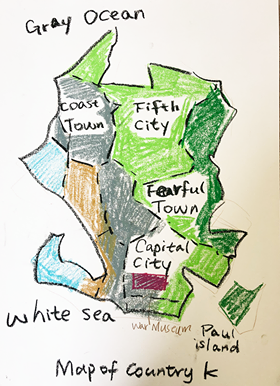 Gray Ocean
Coast
Town
Fifth
City
Fearful
Town
Capital
City
White Sea
War Museum
Paul
island
Map of Country K